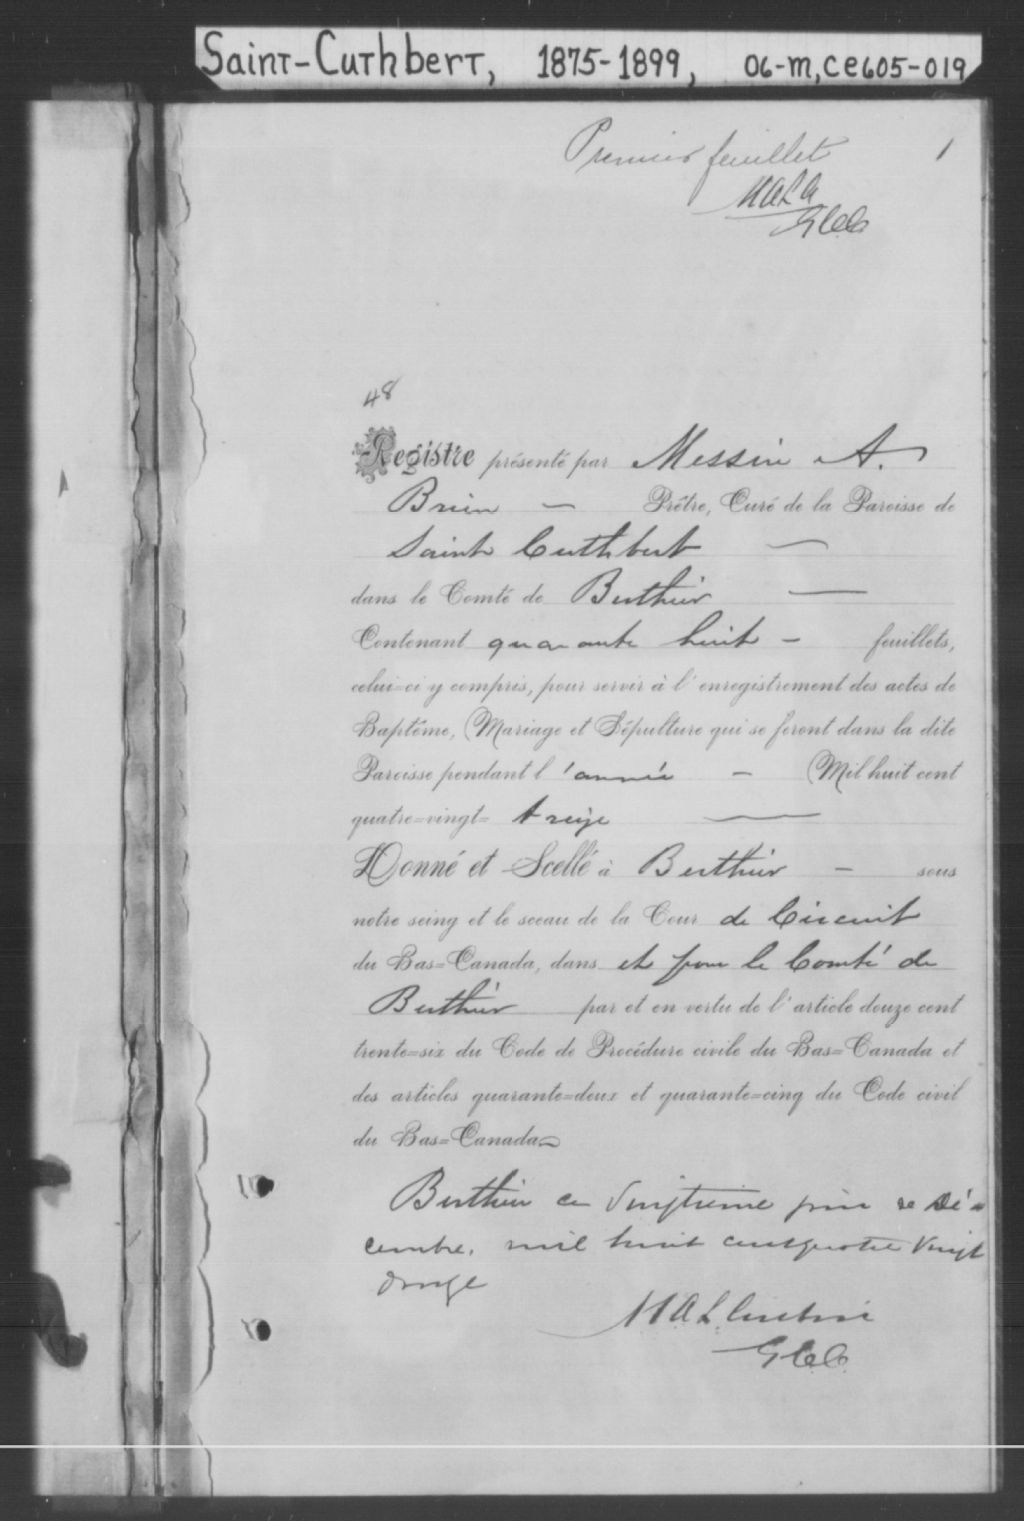 Saint-Cuthbert, 1875-1899, 06-M, CE605-019
Premier feuillet 1
MALA
GCC
48
Registre présenté par Messire A.
Brien — Prêtre, Curé de la Paroisse de
Saint Cuthbert —
dans le Comté de Berthier —
Contenant quarante huit - feuillets,
celui=ci y compris, pour servir à l'enregistrement des actes de
Baptême, Mariage et Sépulture qui se feront dans la dite
Paroisse pendant l'année - Mil huit cent
quatre=vingt= treize —
Donné et Scellé à Berthier - sous
notre seing et le sceau de la Cour de Circuit
du Bas=Canada, dans et pour le Comté de
Berthier par et en vertu de l'article douze cent
trente=six du Code de Procédure civile du Bas=Canada et
des articles quarante=deux et quarante=cinq du Code civil
du Bas=Canada
Berthier ce vingtième jour de Dé=
cembre, mil huit cent quatre vingt
douze
M A L
GCC